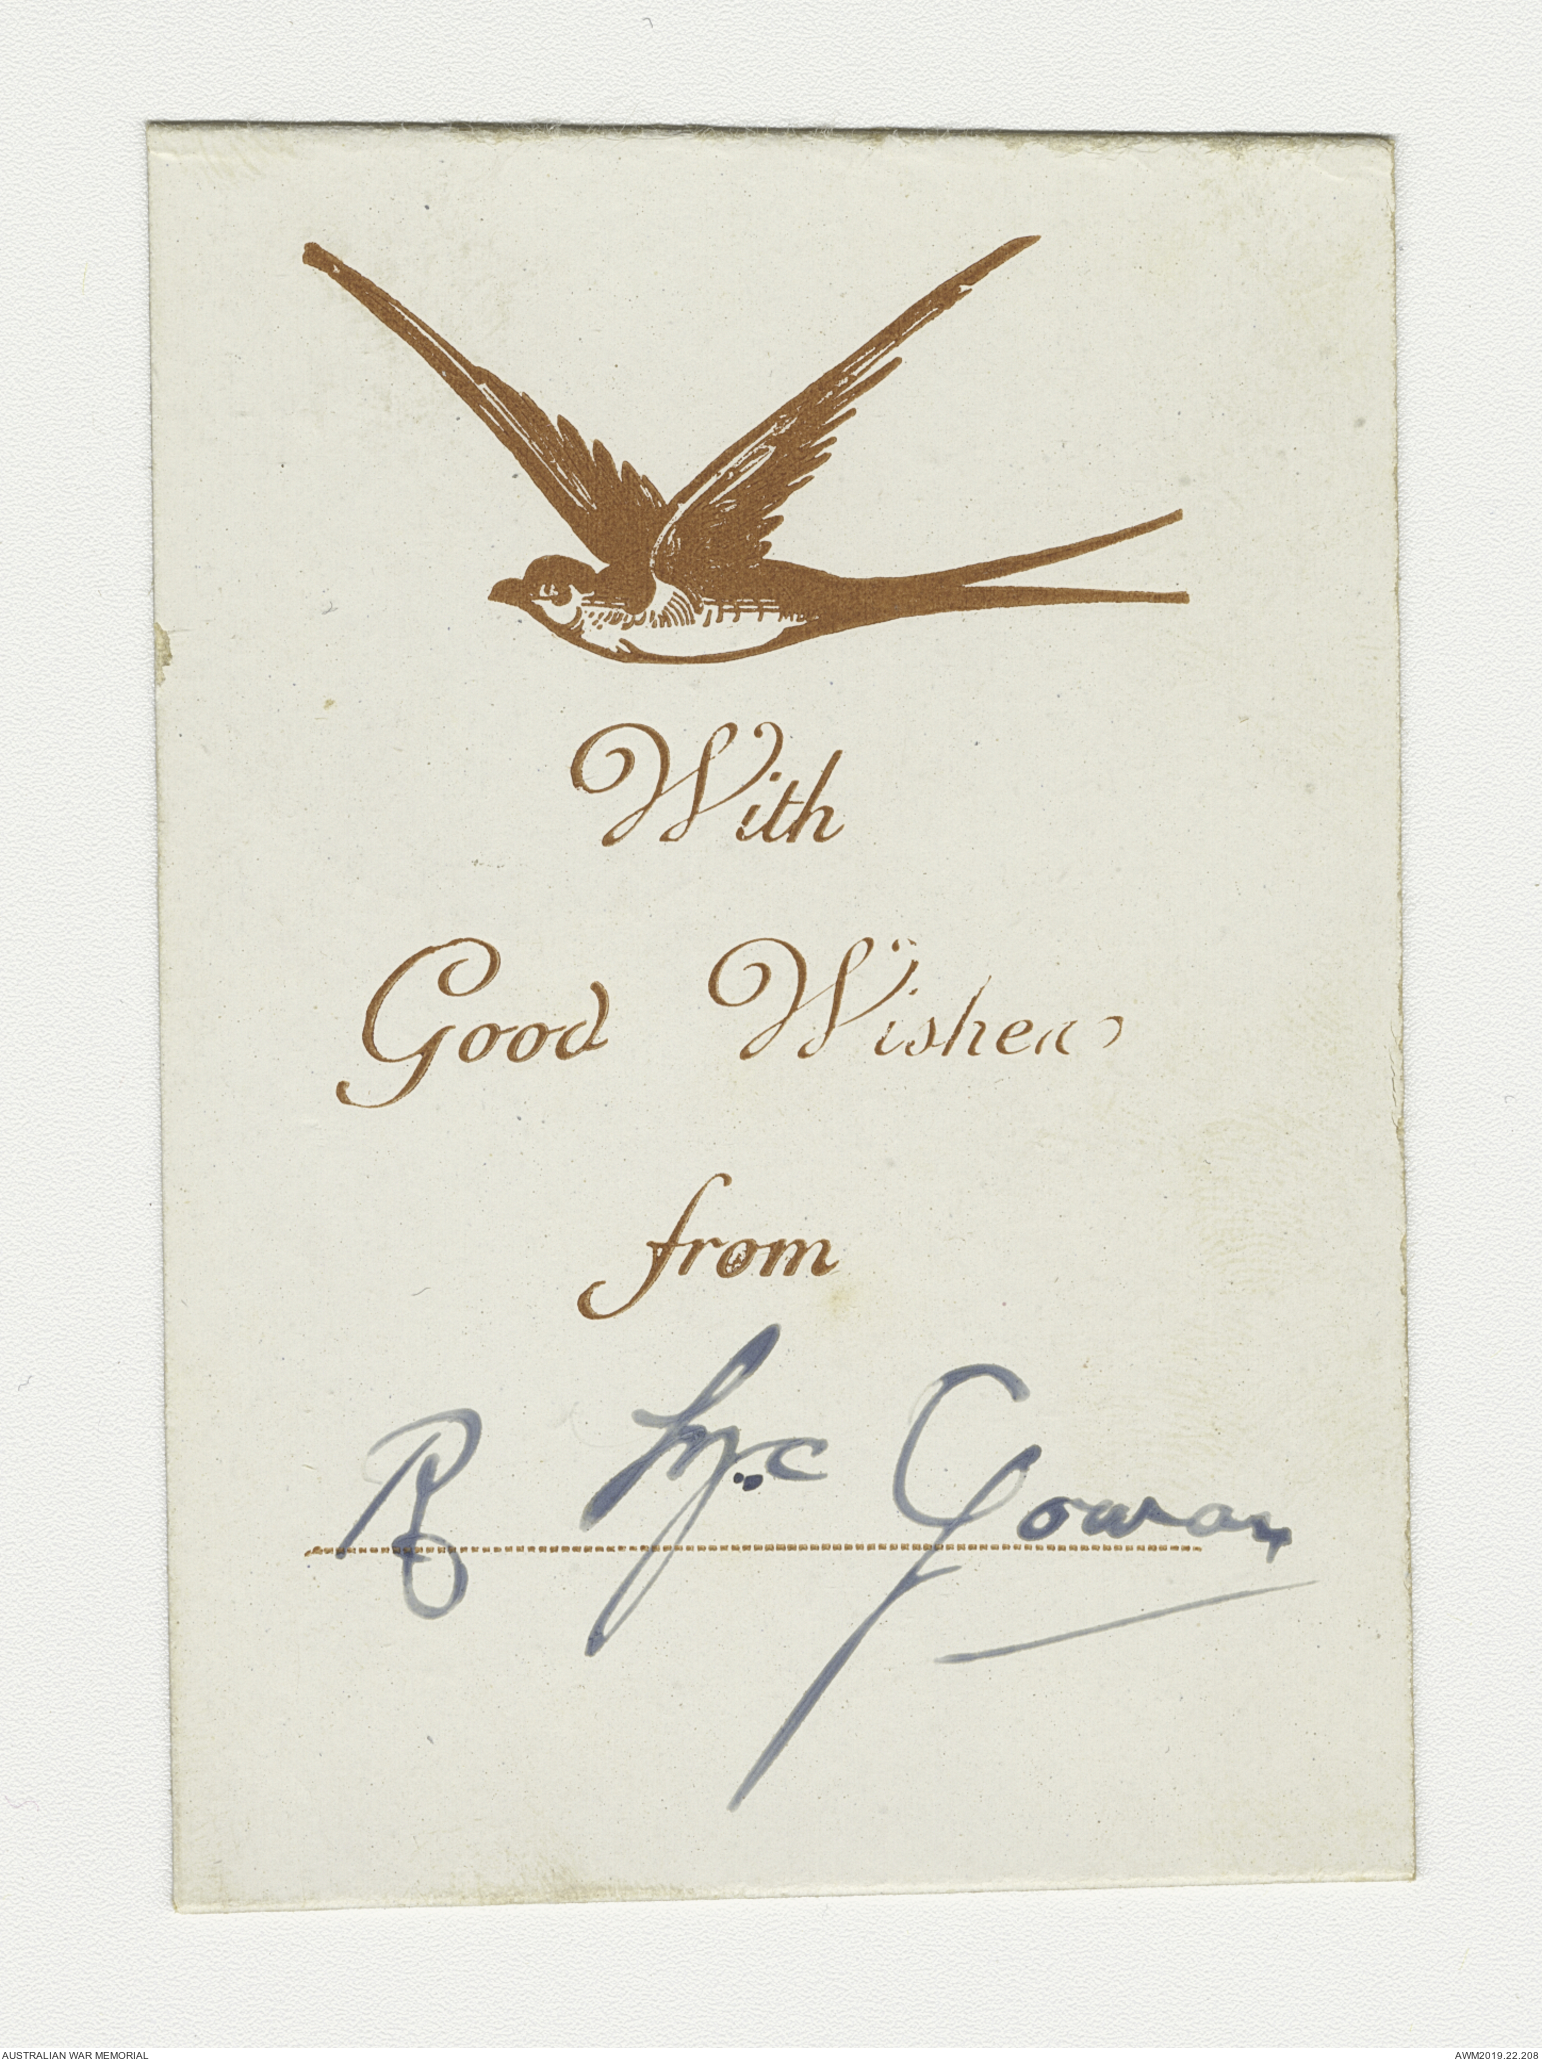 With
Good Wishes
from
R McGowan
AUSTRALIAN WAR MEMORIAL
AWM2019.22.208